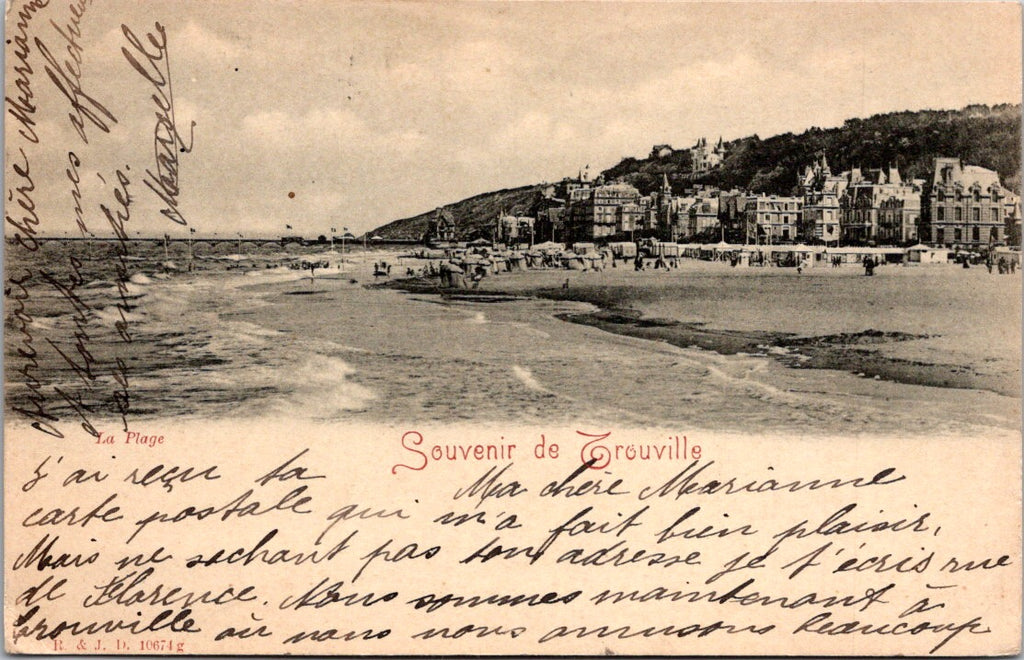 La Plage
Souvenir de Trouville
Ma chère Marianne
J'ai reçu ta
carte postale qui m'a fait bien plaisir,
Mais ne sachant pas ton adresse je t'écris rue
de Florence. Nous sommes maintenant à
Trouville où nous nous amusons beaucoup
R. & J. D. 10674 g
Aurevoir chère Marianne
mes affectueu
amitiés.
Marcelle